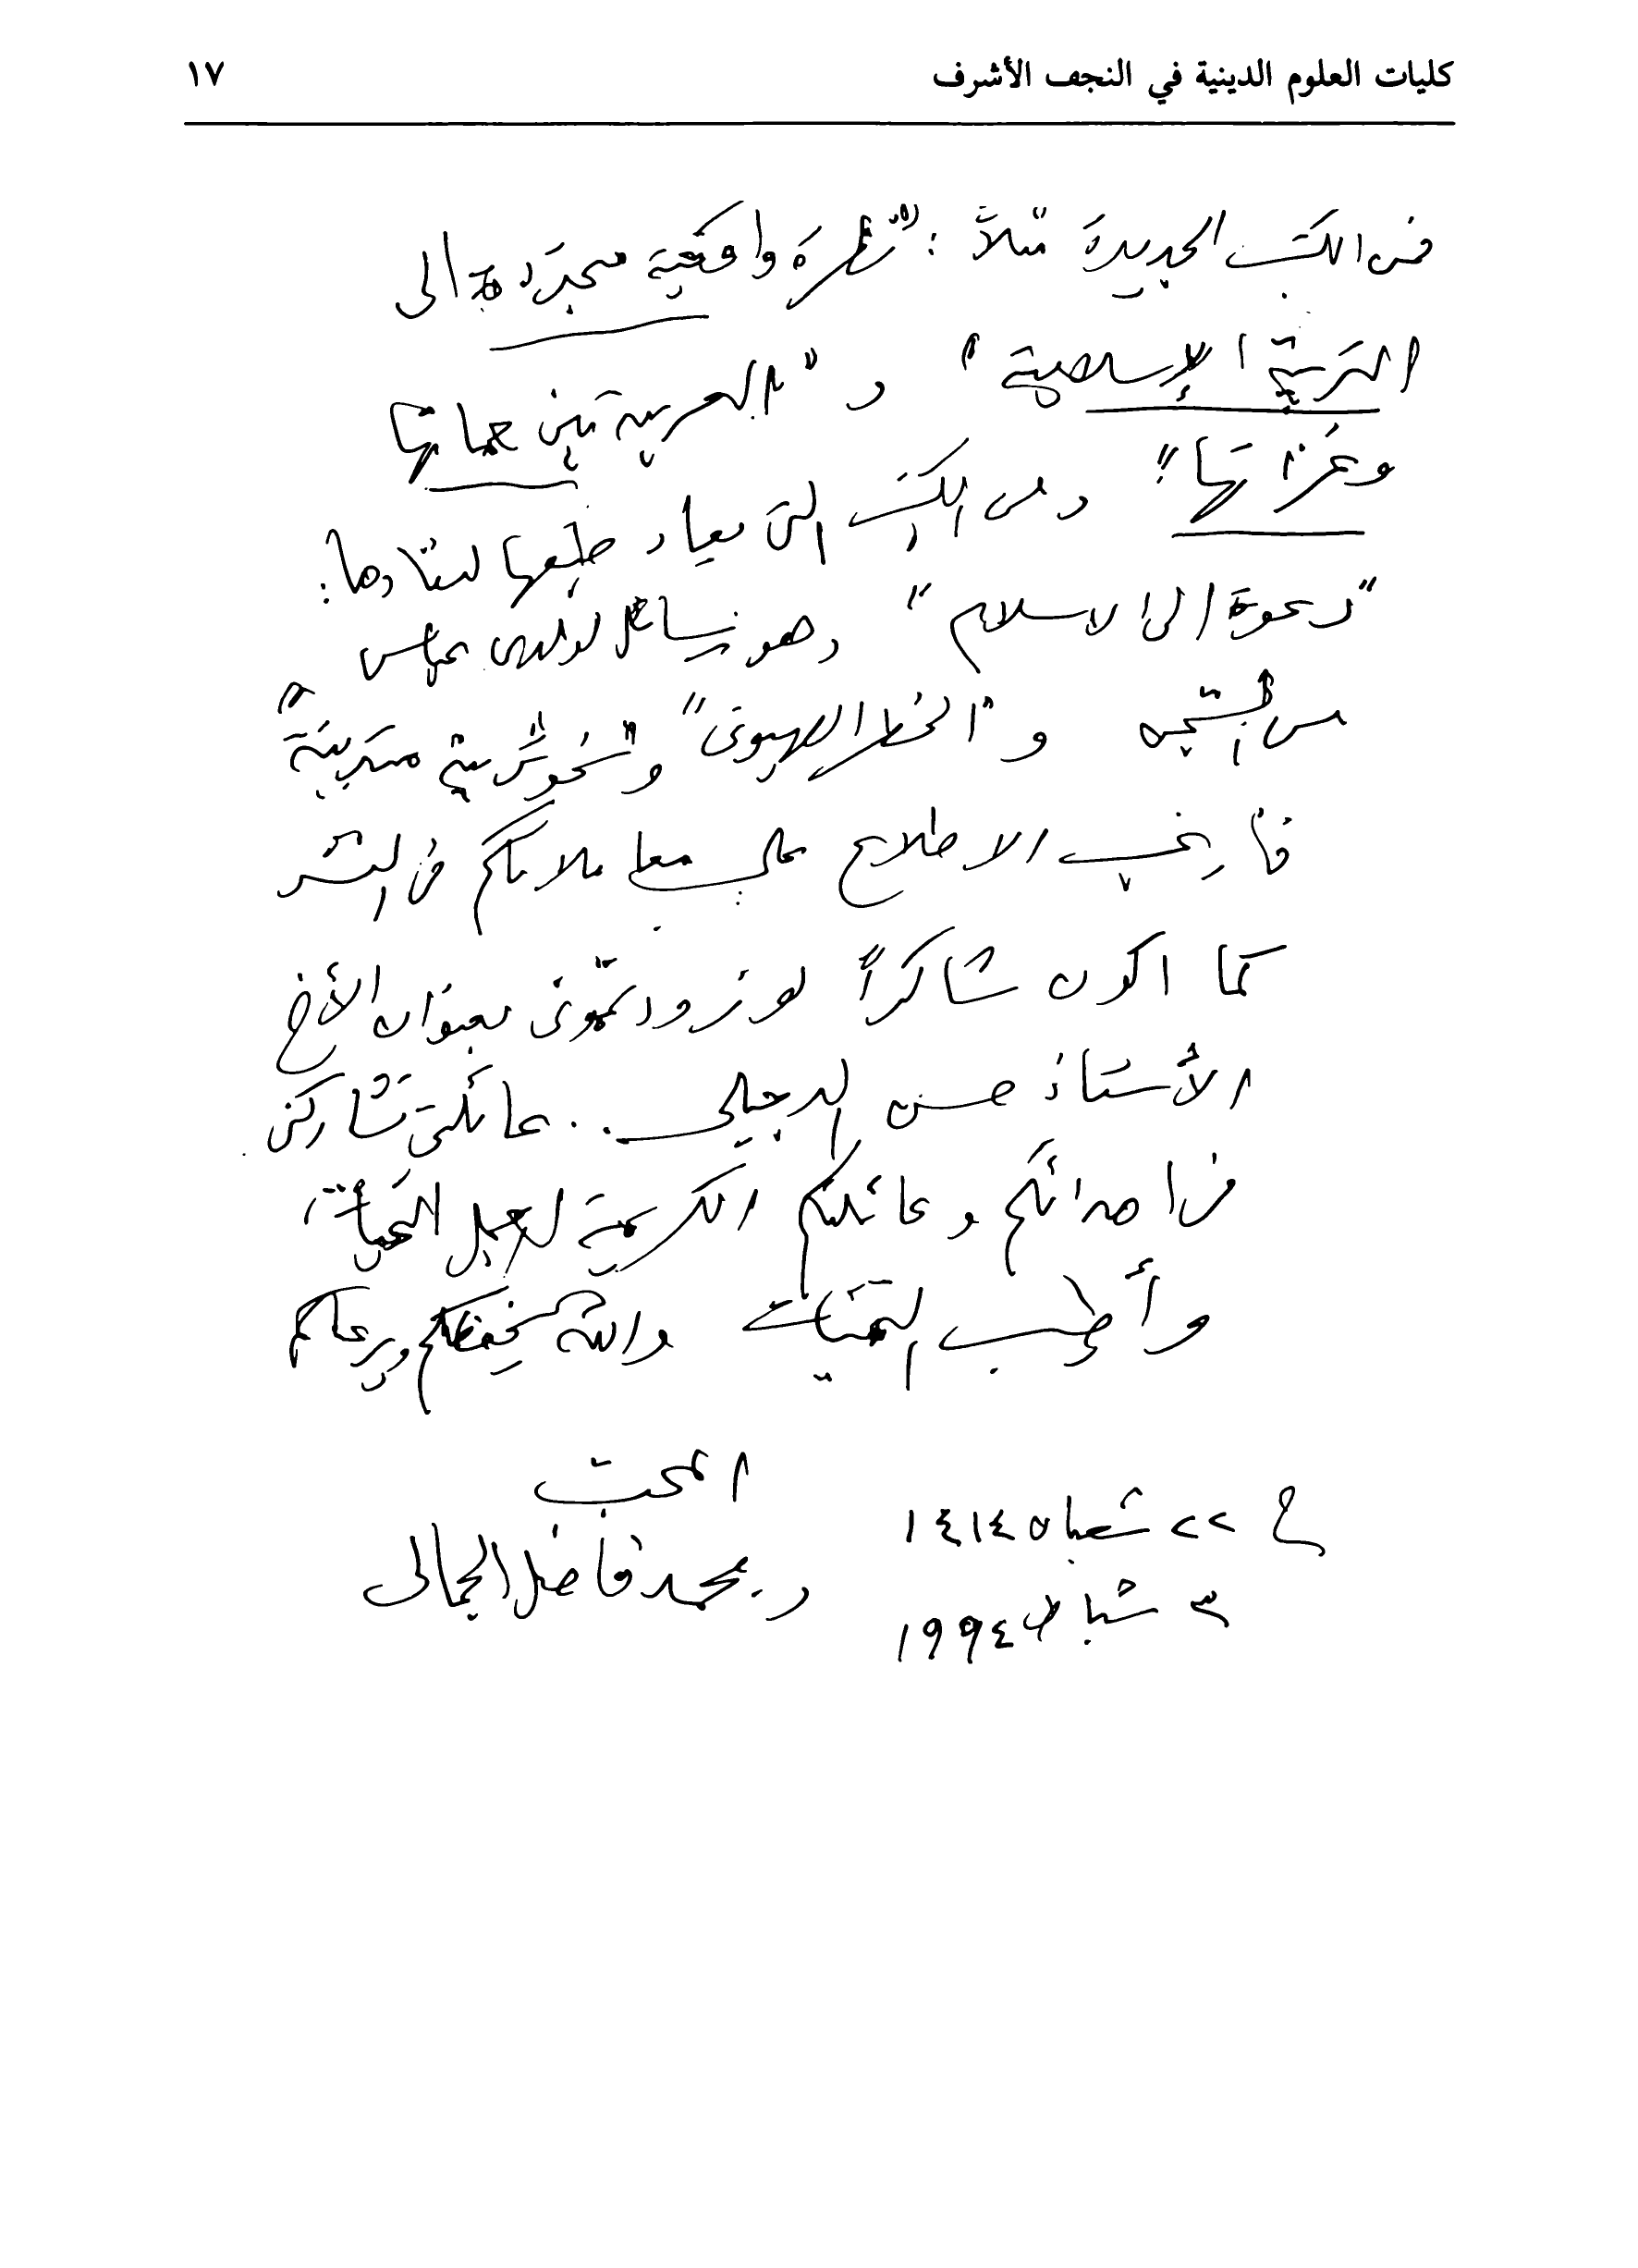 كليات العلوم الدينية في النجف الأشرف ١٧
فمن الكتب الجديدة مثلاً : "نظرة واقعية مجردة الى
التربية الإسلامية" و "العربية بين حماتها
وغزاتها" ومن الكتب التي يعاد طبعها لنفادها:
"دعوة الى الاسلام" وهو رسائل لولدي عباس
من السجن و "الخطر الصهيوني" و "نحو تربية متدينة"
فأرغب الاطلاع على معاملاتكم في النشر
كما اكون شاكراً لو زودتموني بعنوان الأخ
الأستاذ حسن الدجيلي .. عائلتي تشاركني
في اهدائكم وعائلتكم الكريمة لاجمل التحيات،
وأطيب التمنيات والله يحفظكم ويرعاكم
المحب
في ٢٢ شعبان ١٤١٤
د. محمد فاضل الجمالي
٣ شباط ١٩٩٤